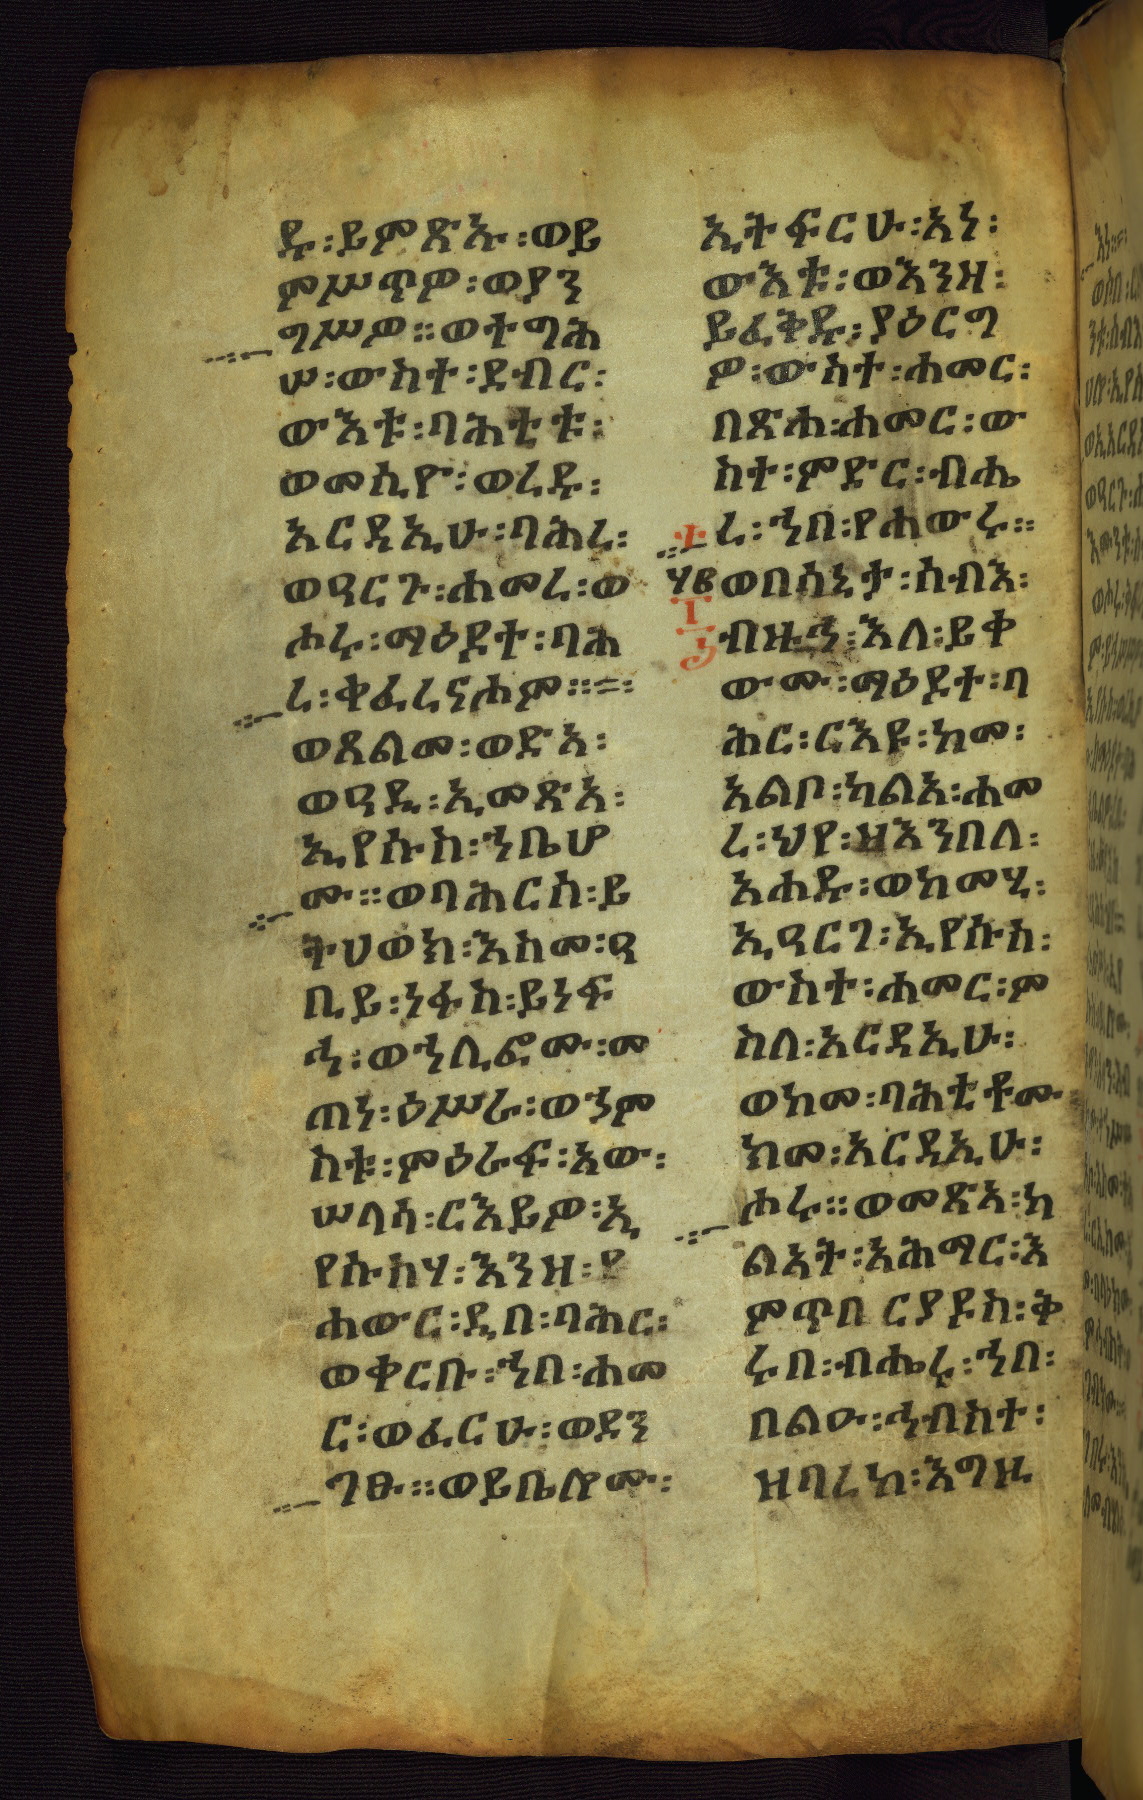 ዱ፡ይምጽኡ፡ወይ
ምሥጥዎ፡ወያን
ግሥዎ፡፡ወተግሕ
ሠ፡ውስተ፡ደብር፡
ውእቱ፡ባሕቲቱ፡
ወመስዮ፡ወረዱ፡
አርዳኢሁ፡ባሕረ፡
ወዓርጉ፡ሐመረ፡ወ
ሖሩ፡ማዕደተ፡ባሕ
ረ፡ቅፈረናሖም፡፡=፡
ወጸልመ፡ወድአ፡
ወዓዲ፡ኢመጽአ፡
ኢየሱስ፡ኀቤሆ
ሙ፡፡ወባሕርስ፡ይ
ትሀወክ፡እስመ፡ዓ
ቢይ፡ነፋስ፡ይነፍ
ኅ፡ወኀሊፎሙ፡መ
ጠነ፡ዕሥራ፡ወኀም
ስቱ፡ምዕራፍ፡አው፡
ሠላሳ፡ርእይዎ፡ኢ
የሱስሃ፡እንዘ፡የ
ሐውር፡ዲበ፡ባሕር፡
ወቀርቡ፡ኀበ፡ሐመ
ር፡ወፈርሁ፡ወደን
ገፁ፡፡ወይቤሎሙ፡
ኢትፍርሁ፡አነ፡
ውእቱ፡ወእንዘ፡
ይፈቅዱ፡ያዕርግ
ዎ፡ውስተ፡ሐመር፡
በጽሐ፡ሐመር፡ው
ስተ፡ምድር፡ብሔ
ረ፡ኀበ፡የሐውሩ፡፡
ወበሳኒታ፡ሰብእ፡
ብዙኅ፡እለ፡ይቀ
ውሙ፡ማዕደተ፡ባ
ሕር፡ርእዩ፡ከመ፡
አልቦ፡ካልእ፡ሐመ
ረ፡ህየ፡ዘእንበለ፡
አሐዱ፡ወከመሂ፡
ኢዓርገ፡ኢየሱስ፡
ውስተ፡ሐመር፡ም
ስለ፡አርዳኢሁ፡
ወከመ፡ባሕቲቶሙ
ክመ፡አርዳኢሁ፡
ሖሩ፡፡ወመጽአ፡ካ
ልኣት፡አሕማር፡እ
ምጥበርያዶስ፡ቅ
ሩበ፡ብሔሩ፡ኀበ፡
በልዑ፡ኅብስተ፡
ዘባረከ፡እግዚ